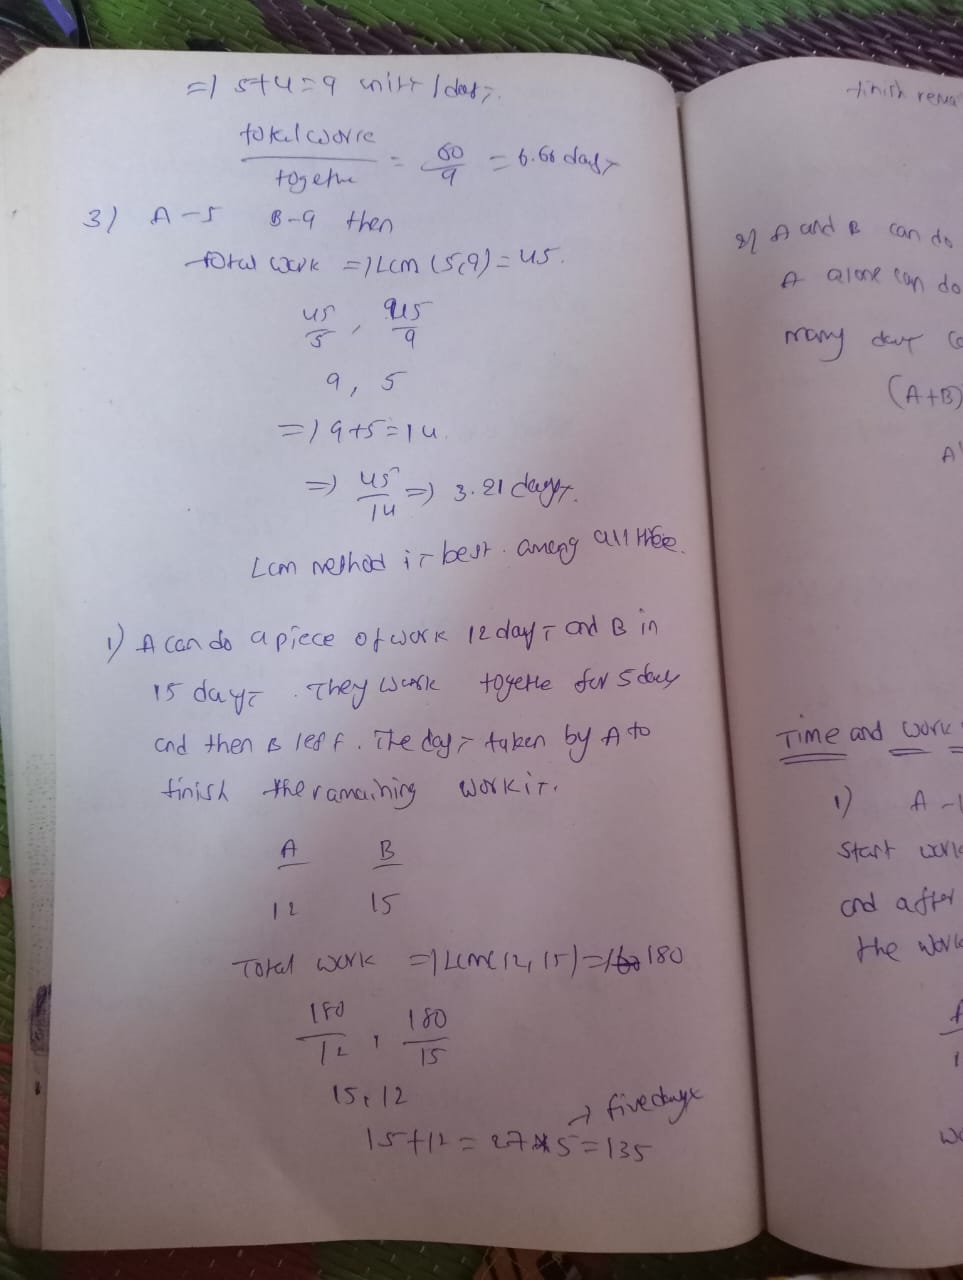 =) 5+4=9 units/days.
total work / together = 60/9 = 6.66 days
3) A-5 B-9 then
total work =) Lcm (5,9) = 45.
45/5 , 45/9
9, 5
=) 9+5=14.
=) 45/14 =) 3.21 days.
Lcm method is best among all three.
1) A can do a piece of work 12 days and B in
15 days. They work together for 5 days
and then B left. The days taken by A to
finish the ramaining work is.
A B
12 15
Total work =) Lcm(12, 15) = 180
180/12 , 180/15
15, 12
→ five days
15+12 = 27*5 = 135
finish rema
2) A and B can do
A alone can do
many days
(A+B)
A
Time and work
1) A -1
Start work
and after
the work